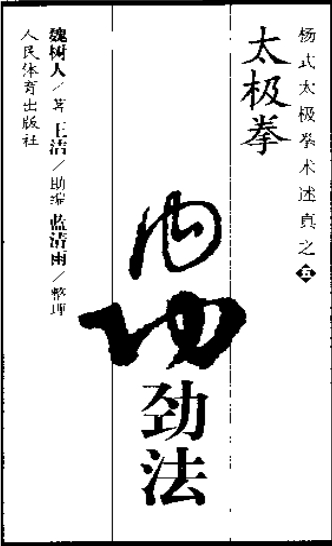 杨式太极拳术述真之五
太极拳
内功
劲法
魏树人/著 王洁/助编 蓝清雨/整理
人民体育出版社